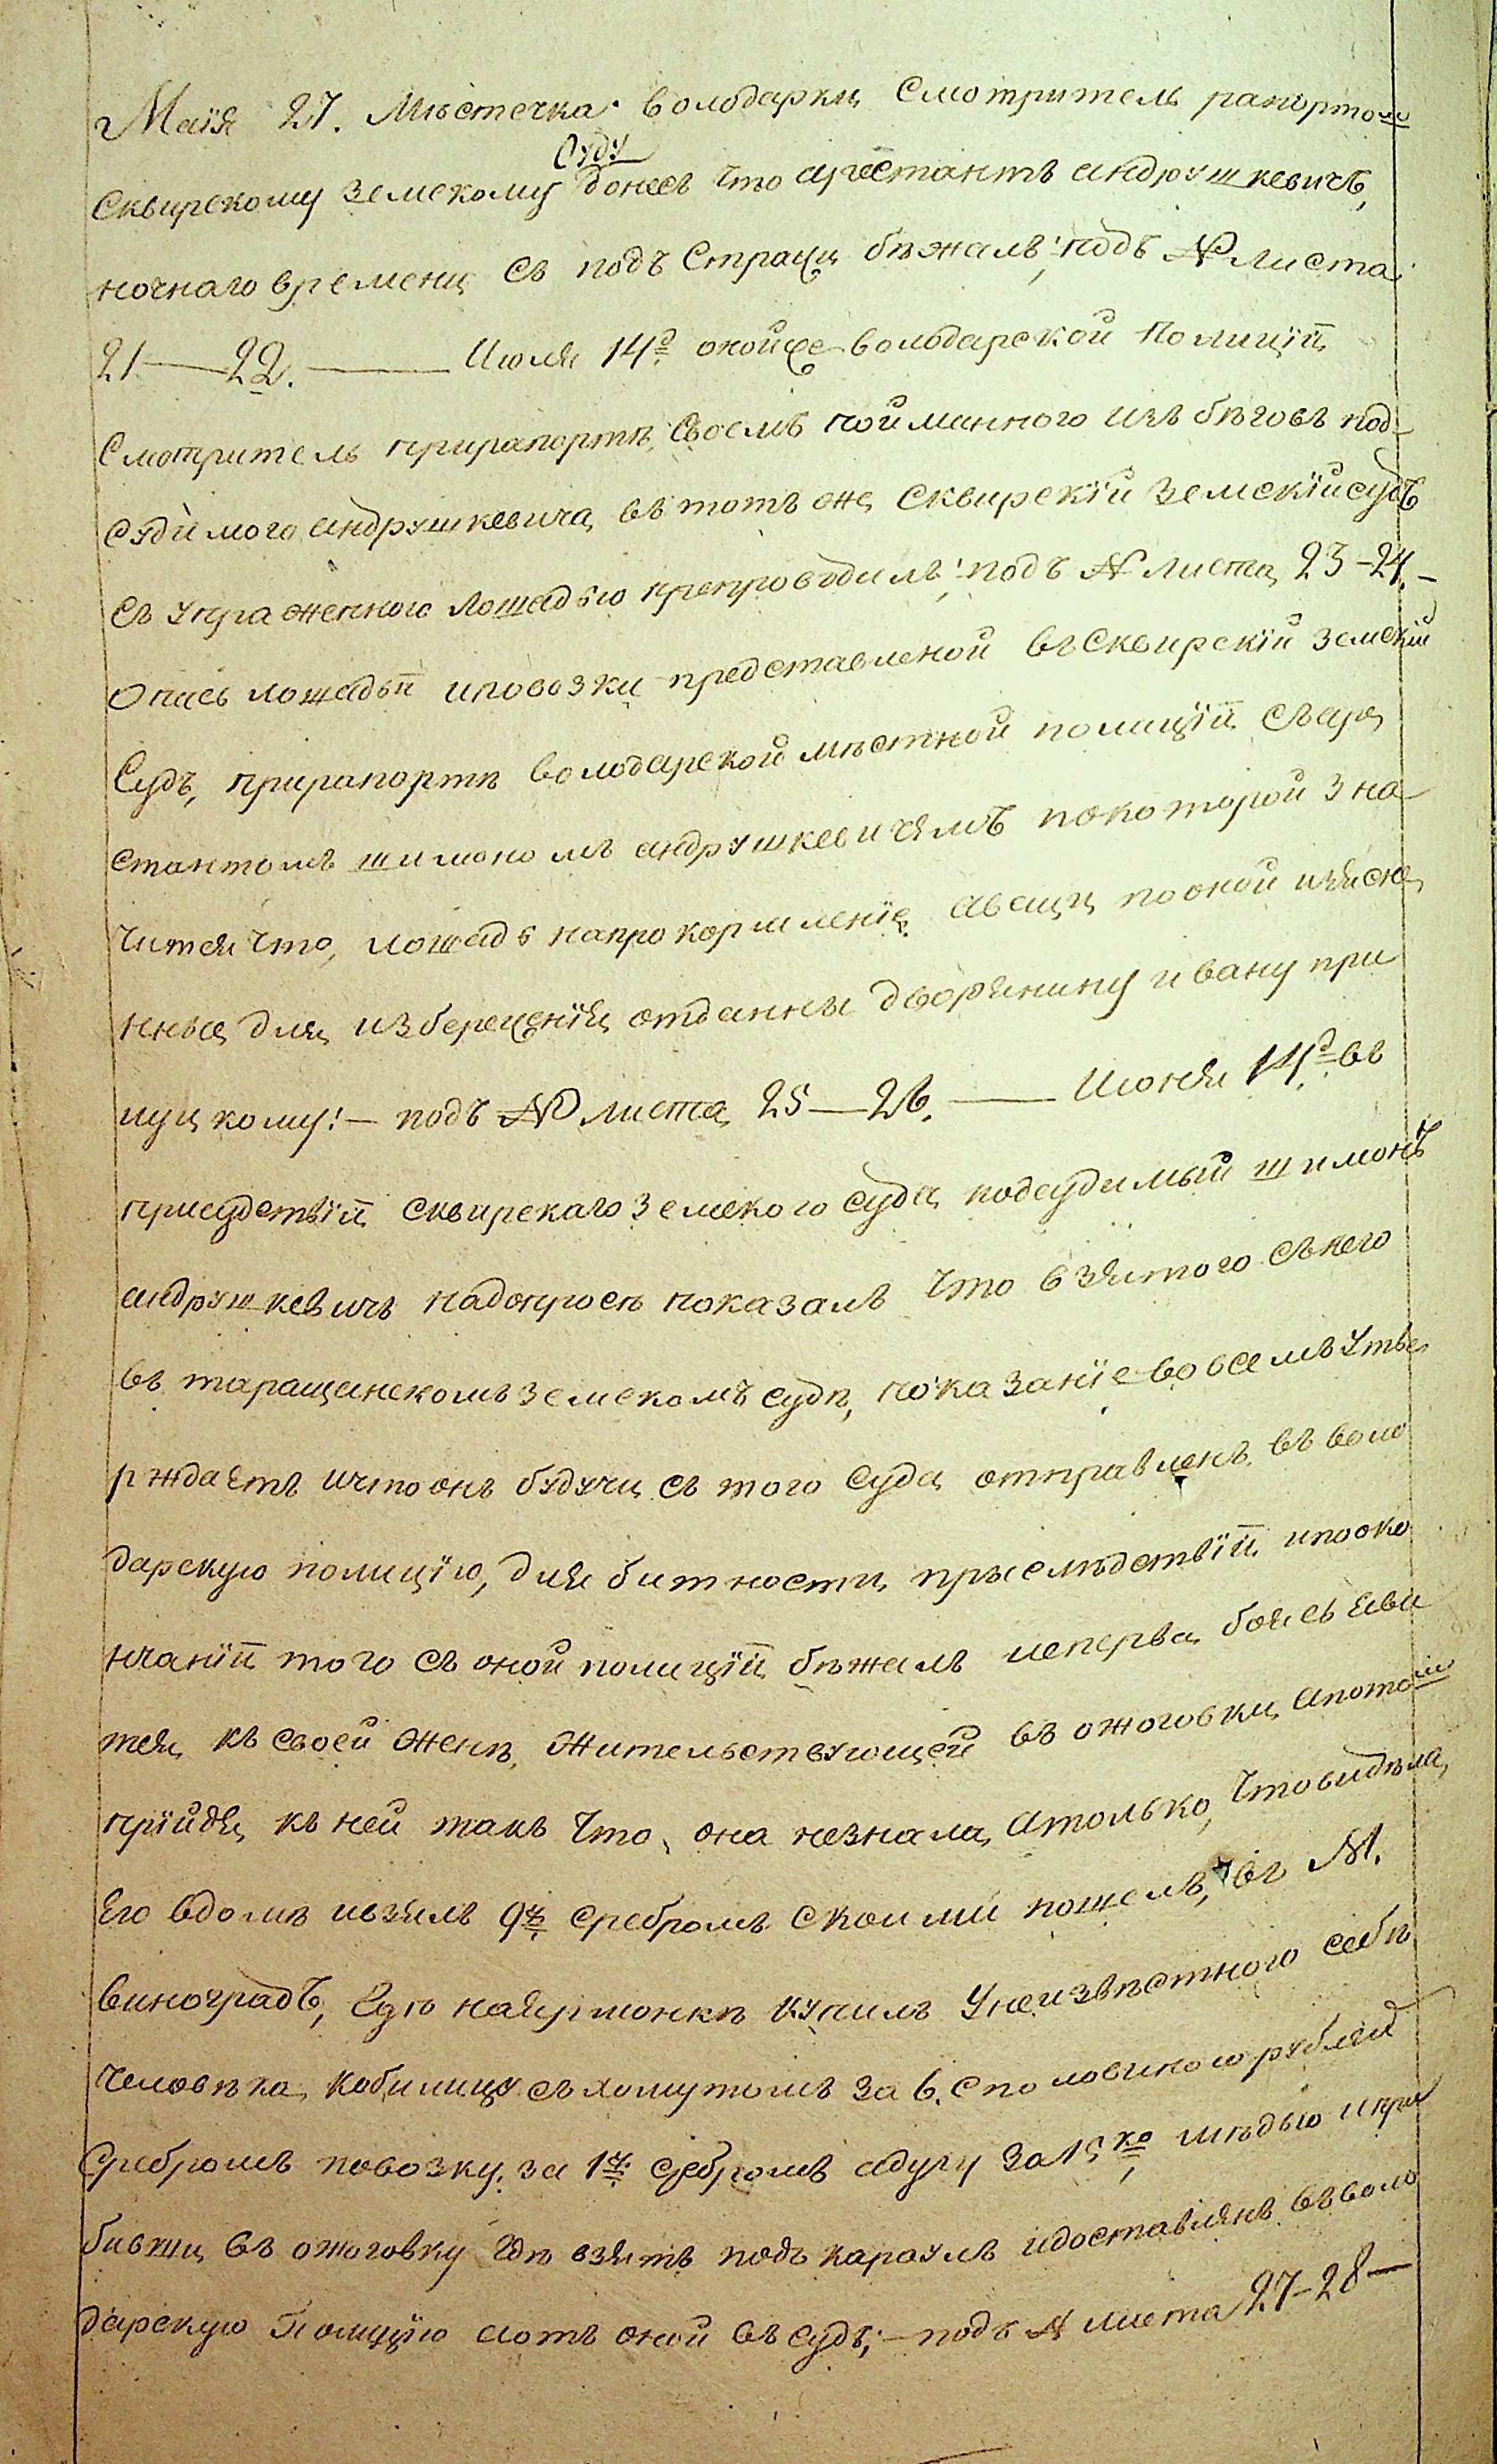 Маія 27. Мѣстечка Володарки Смотритель рапортомъ
Суду
Сквирскому Земскому донесъ что арестантъ андрушкевичъ,
ночнаго времени съ подъ Стражи бѣжалъ; подъ № листа
21 — 22. — Июля 14го оной же володарской Полиціи
Смотритель прирапортѣ Своемъ пойманного изъ бѣговъ под-
судимого андрушкевича въ тотъ же Сквирскій Земскій судъ
съ упряженною лошадью препроводилъ; подъ № листа 23-24. -
Опись лошадьи иповозки представленой въ Сквирскій Земскій
Судъ, прирапортѣ володарской мѣстной полиціи съ аре
стантомъ шимономъ андрушкевичемъ покоторой зна
читея что, лошадь напрокормленіе, авещи пооной изясне
нные для избереженія отданны дворянину ивану при
луцкому! — подъ № листа 25 — 26. — Июня 14го въ
присудствіи сквирскаго земского суда подсудимый шимонъ
андрушкевичъ надопросѣ показалъ что взятого съ него
въ таращанскомъ земскомъ судѣ, показаніе вовсемъ утве
рждаетъ ичто онъ будучи съ того Суда отправленъ въ воло
дарскую полицію, для битности прыслѣдствіи ипооко
нчаніи того съ оной полиціи бѣжалъ исперва боясь яви
тся къ своей женѣ, жительствующей въ ожоговки, апотомъ
прійдя къ ней такъ что, она незнала, атолько, чтовидѣла,
Его вдомѣ ивзялъ 9 Сребромъ скоими пошелъ, въ М.
виноградъ, Где наярмонкѣ купилъ Унеизвѣстного себѣ
человѣка кобилицу съ хомутомъ за 6. споловиною рублей
Сребромъ повозку за 1 Сребромъ адугу за 15 ко мѣдью ипри
бивши въ ожоговку Где взятъ подъ караулъ идоставленъ въ воло
дарскую Полицію аотъ оной въ судъ; — подъ № листа 27-28 —